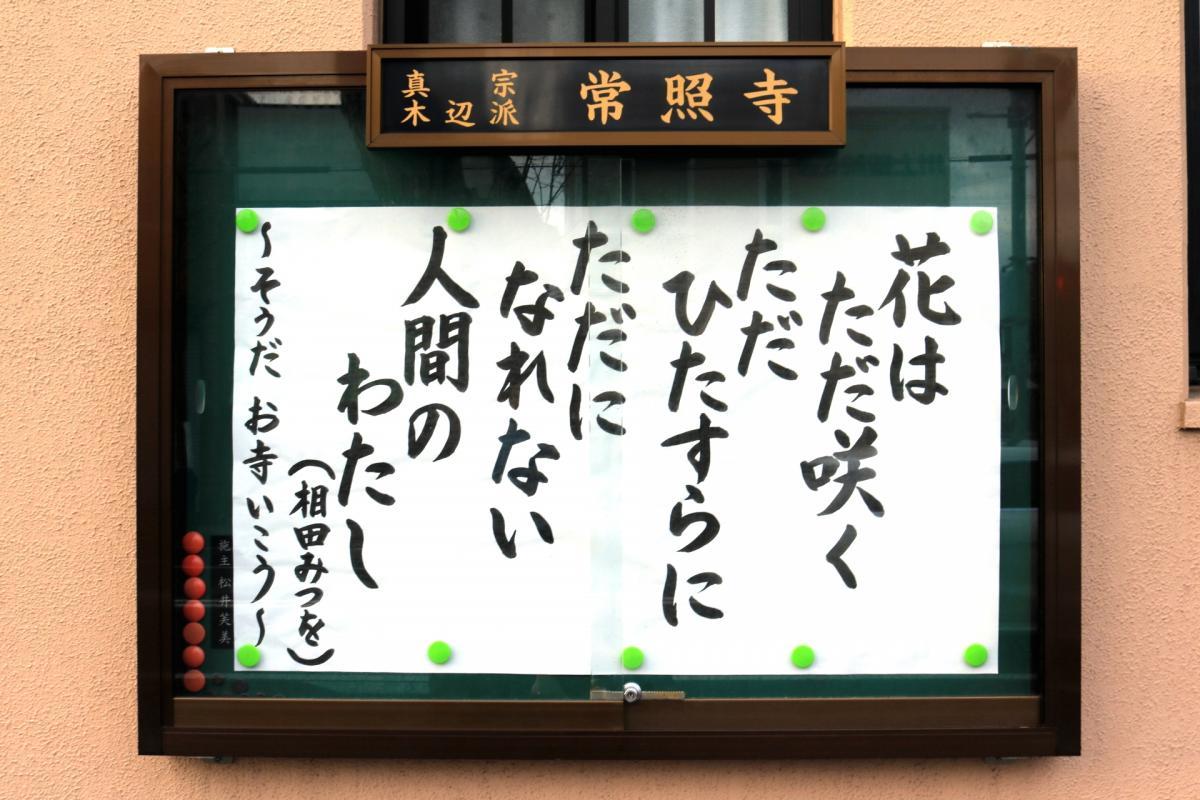 真宗
木辺派
常照寺
花は
ただ咲く
ただ
ひたすらに
ただに
なれない
人間の
わたし
(相田みつを)
~そうだ お寺いこう~
施主 松井芙美